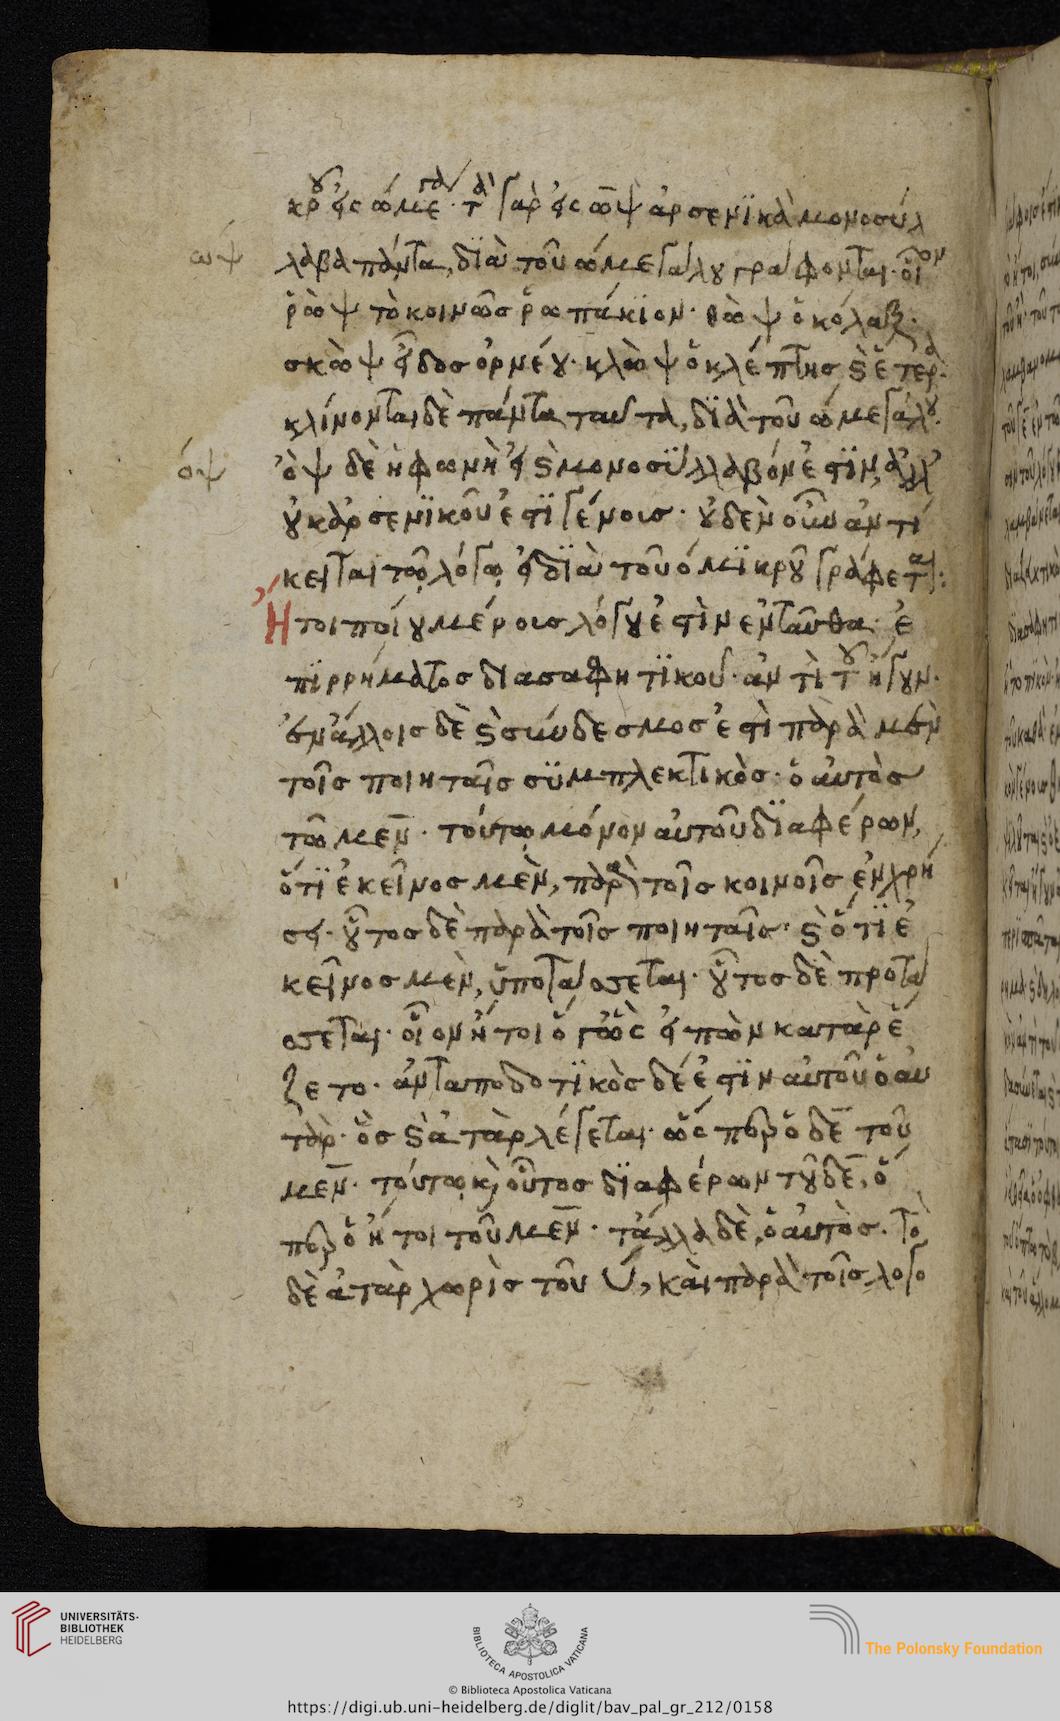 ωψ
όψ
κρου εἰς ὦ μέγα· τὰ γὰρ εἰς ωψ ἀρσενϊκὰ μονοσύλ
λαβα πάντα, δϊὰ τοῦ ὠμεγάλου γράφονται· οἷον
ῥὼψ τὸ κοινῶς ῥωπάκϊον· θὼψ ὁ κόλαξ·
σκὼψ εἶδος ὀρνέου· κλὼψ ὁ κλέπτης καὶ ἕτερα·
κλίνονται δὲ πάντα ταῦτα, δϊὰ τοῦ ὠμεγάλου·
ὂψ δὲ ἡ φωνὴ εἰ καὶ μονοσϋλλαβόν ἐστϊν, ἀλλ'
οὐκ ἀρσενϊκοῦ ἐστϊ γένους· οὐδὲν οὖν ἀντί
κειται τῷ λόγῳ εἰ δϊὰ τοῦ ὀμϊκροῦ γράφεται:
Ἤτοι ποίου μέρους λόγου ἐστὶν ἐνταῦθα· ἐ
πϊρρήματος διασαφητϊκοῦ· ἀντὶ τοῦ ἤγουν·
ἐν ἄλλοις δὲ καὶ σύνδεσμος ἐστὶ παρὰ μὲν
τοῖς ποιηταῖς σϋμπλεκτικὸς· ὁ αὐτὸς
τῷ μεν· τούτῳ μόνον αὐτοῦ δϊαφέρων,
ὅτϊ ἐκεῖνος μὲν, παρὰ τοῖς κοινοῖς ἐν χρή
σει· οὗτος δὲ παρὰ τοῖς ποιηταῖς· καὶ ὅτϊ ἐ
κεῖνος μὲν, ὑποτάσσεται· οὗτος δὲ προτά
σσεται· οἷον ἤτοι ὅ γ' ὣς εἰπὼν κατ' ἂρ ἕ
ζετο· ἀνταποδοτϊκὸς δέ ἐστϊν αὐτοῦ ὁ αὐ
τάρ· ὃς καὶ ἀτὰρ λέγεται· ὥσπερ ὁ δε τοῦ
μεν· τούτῳ καὶ οὗτος δϊαφέρων τοῦ δε, ᾧ
περ ὁ ἤτοι τοῦ μεν· τἄλλα δὲ, ὁ αὐτὸς· Τὸ
δὲ ἀτὰρ χωρὶς τοῦ υ, καὶ παρὰ τοῖς λογο
UNIVERSITÄTS-
BIBLIOTHEK
HEIDELBERG
BIBLIOTECA APOSTOLICA VATICANA
© Biblioteca Apostolica Vaticana
The Polonsky Foundation
https://digi.ub.uni-heidelberg.de/diglit/bav_pal_gr_212/0158